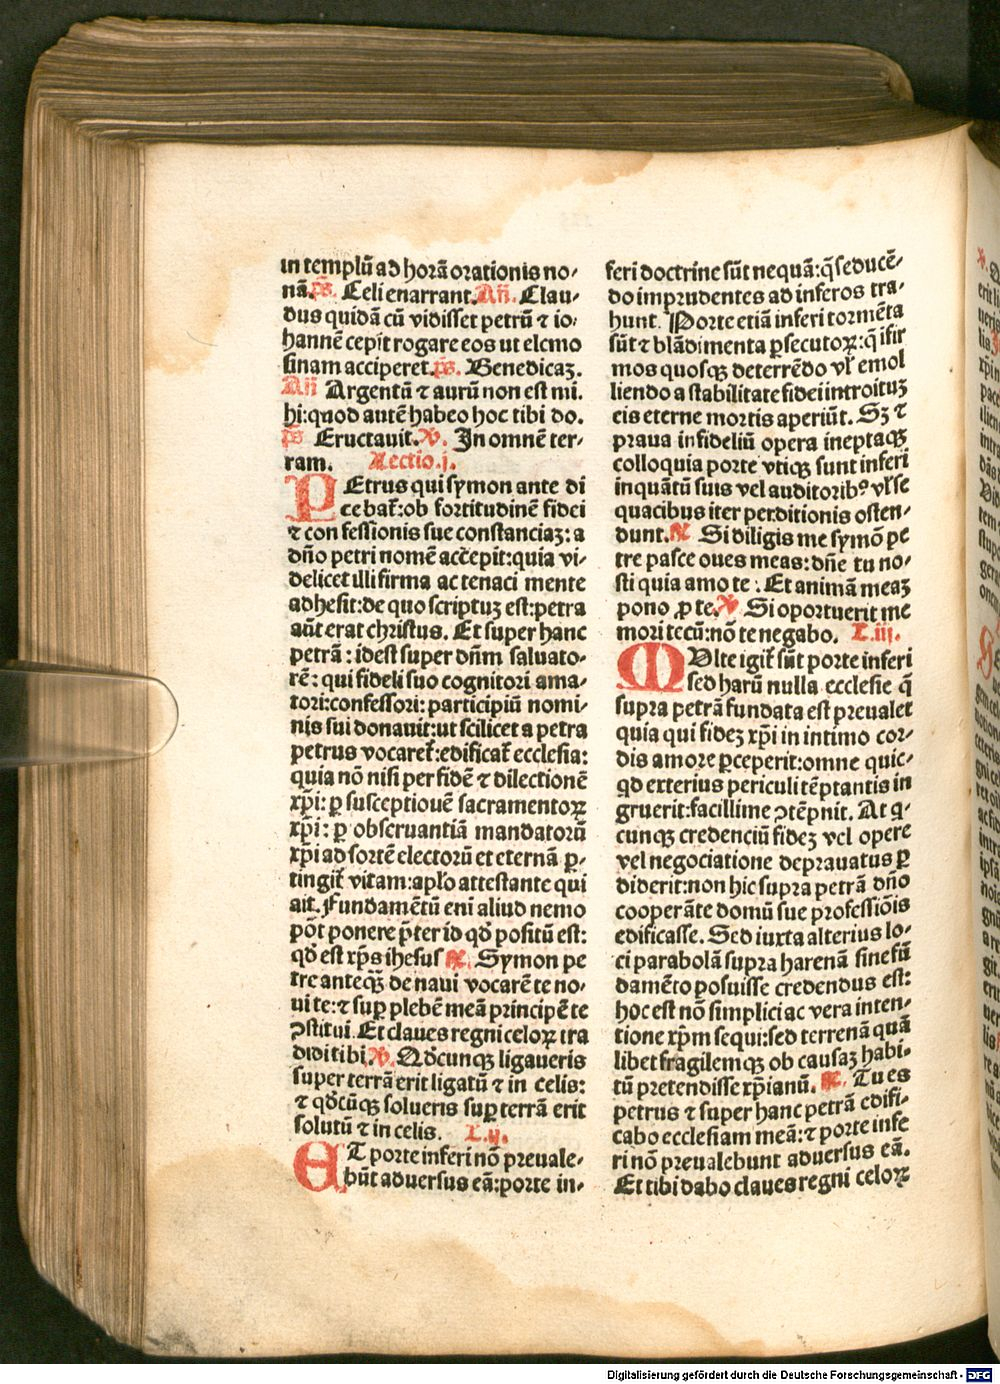 in templū ad horā orationis no-
nā. p̄s. Celi enarrant. Añ. Clau-
dus quidā cū vidisset petrū ⁊ io-
hannē cepit rogare eos ut elemo
sinam acciperet. p̄s. Benedicaꝫ.
Añ Argentū ⁊ aurū non est mi-
hi: quod autē habeo hoc tibi do.
p̄s Eructauit. ℣. In omnē ter-
ram. Lectio .j.
PEtrus qui symon ante di
cebat᷑: ob fortitudinē fidei
⁊ confessionis sue constanciaꝫ: a
dño petri nomē accepit: quia vi-
delicet illi firma ac tenaci mente
adhesit: de quo scriptuꝫ est: petra
aūt erat christus. Et super hanc
petrā: idest super dñm saluato-
rē: qui fideli suo cognitori ama-
tori: confessori: participiū nomi-
nis sui donauit: ut scilicet a petra
petrus vocaret᷑: edificat᷑ ecclesia:
quia nō nisi per fidē ⁊ dilectionē
xp̄i: ꝑ susceptionē sacramentoꝝ
xp̄i: ꝑ obseruantiā mandatorū
xp̄i ad sortē electorū et eternā ꝑ-
tingit᷑ vitam: apl̓o attestante qui
ait. Fundamētū eni aliud nemo
pōt ponere p̄ter id qd̓ positū est:
qd̓ est xp̄s ihesus ℟. Symon pe
tre anteqꝫ̄ de naui vocarē te no-
ui te: ⁊ suꝑ plebē meā principē te
ꝯstitui. Et claues regni celoꝝ tra
didi tibi. ℣. Qd̓cunqꝫ ligaueris
super terrā erit ligatū ⁊ in celis:
⁊ qd̓cūqꝫ solueris suꝑ terrā erit
solutū ⁊ in celis. L.ij.
ET porte inferi nō preuale-
būt aduersus eā: porte in-
feri doctrine sūt nequā: q̄ seducē-
do imprudentes ad inferos tra-
hunt. Porte etiā inferi tormēta
sūt ⁊ blādimenta ꝑsecutoꝝ: q̄ ifir
mos quosqꝫ deterrēdo vl̓ emol
liendo a stabilitate fidei introituꝫ
eis eterne mortis aperiūt. Sꝫ ⁊
praua infideliū opera ineptaqꝫ
colloquia porte vtiqꝫ sunt inferi
inquātū suis vel auditoribꝰ vl̓ se
quacibus iter perditionis osten-
dunt. ℟ Si diligis me symō pe
tre pasce oues meas: dñe tu no-
sti quia amo te. Et animā meaꝫ
pono ꝓ te. ℣ Si oportuerit me
mori tecū: nō te negabo. L.iij.
MVlte igit᷑ sūt porte inferi
sed harū nulla ecclesie q̄
supra petrā fundata est preualet
quia qui fideꝫ xp̄i in intimo cor-
dis amore ꝑceperit: omne quic-
qd exterius periculi tēptantis in
gruerit: facillime ꝯtēpnit. At q̄-
cunqꝫ credenciū fideꝫ vel opere
vel negociatione deprauatus ꝑ
diderit: non hic supra petrā dño
cooperāte domū sue professiōis
edificasse. Sed iuxta alterius lo-
ci parabolā supra harenā sine fū
damēto posuisse credendus est:
hoc est nō simplici ac vera inten-
tione xp̄m sequi: sed terrenā quā
libet fragilemqꝫ ob causaꝫ habi-
tū pretendisse xp̄ianū. ℟. Tu es
petrus ⁊ super hanc petrā edifi-
cabo ecclesiam meā: ⁊ porte infe
ri nō preualebunt aduersus eā.
Et tibi dabo claues regni celoꝝ
Digitalisierung gefördert durch die Deutsche Forschungsgemeinschaft - DFG